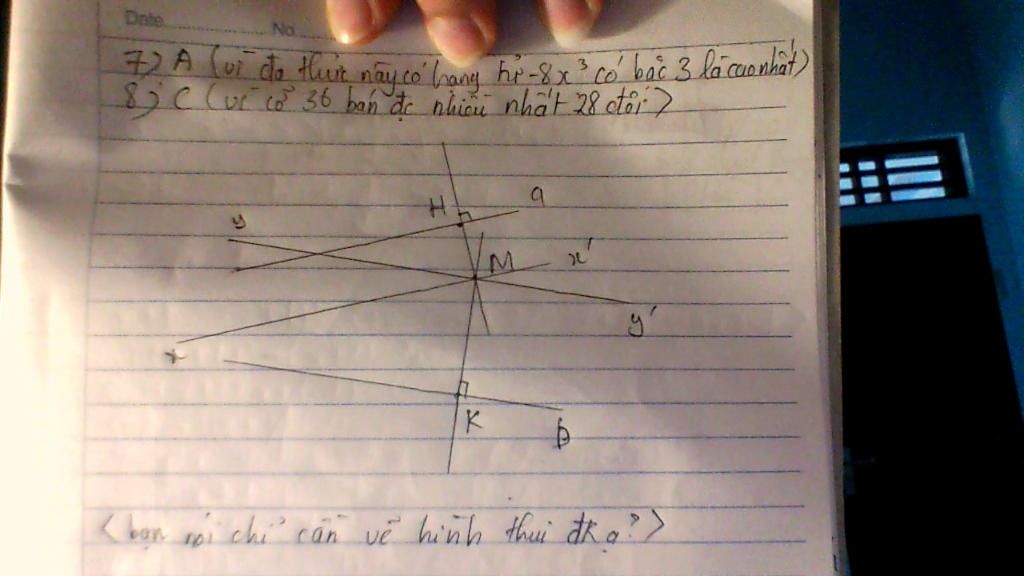 Date No.
7) A (vì đa thức này có hạng tử -8x³ có bậc 3 là cao nhất)
8) C (vì có 36 bạn đc nhiều nhất 28 đôi)
H a
y
M x'
y'
x
K b
(bạn nói chỉ cần vẽ hình thui đk ạ?)